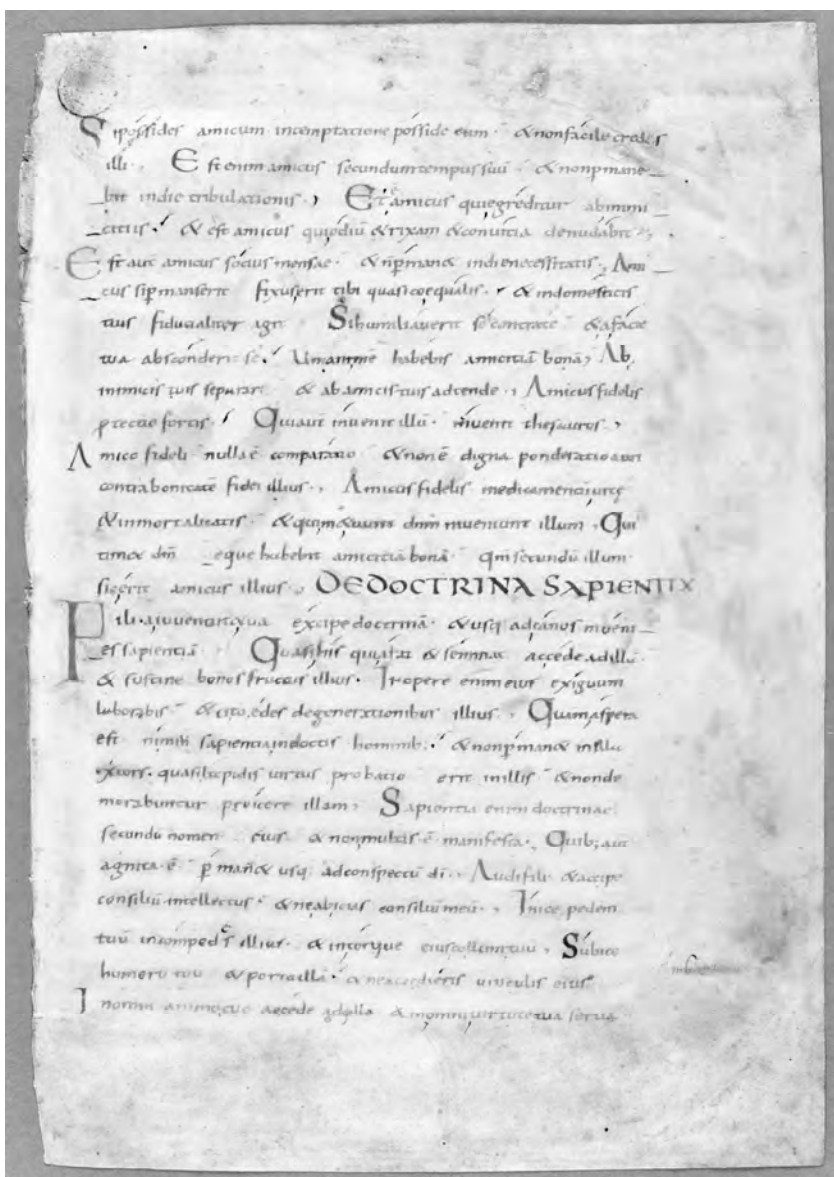 Si possides amicum in temptatione posside eum · & non facile credas
illi ·, Est enim amicus secundum tempus suū · & non pmane
bit in die tribulationis ·, Et ē amicus qui egreditur ab inimi
citiis · & est amicus qui odiū & rixam & conuitia denudabit ·,
Est aut amicus socius mensae · & n pman& in die necessitatis, Ami
cus si pmanserit fixus erit tibi quasi coequalis · & in domesticis
tuis fiducialiter ag& Si humiliauerit se contra te · & a facie
tua absconderit se · Unanimē habebis amicitiā bonā, Ab
inimicis tuis separare & ab amicis tuis adtende ·, Amicus fidelis
protectio fortis · Qui aut inuenit illū · inuenit thesauros ·,
Amico fideli nulla ē comparatio · & non ē digna ponderatio auri
contra bonitatē fidei illius ·, Amicus fidelis medicamentū uitę
& inmortalitatis · & qui metuunt dnm inuenient illum · Qui
tim& dm eque habebit amicitiā bonā · qm secundū illum
sic erit amicus illius · DE DOCTRINA SAPIENTIAE
Fili · a iuuentute tua excipe doctrinā · & usq ad canos inueni
es sapientiā · Quasi his qui arat & seminat accede ad illū ·
& sustine bonos fructus illius · In opere enim eius exiguum
laborabis · & cito edes de generationibus illius ·, Quam aspera
est nimiū sapientia indoctis hominib · & non pman& in illa
excors · quasi lapidis uirtus probatio erit in illis · & non de
morabuntur proicere illam, Sapientia enim doctrinae
secundū nomen eius & non multis ē manifesta · Quib; aut
agnita ē pman& usq ad conspectū di ·, Audi fili & accipe
consiliū intellectus · & ne abicias consiliū meū ·, Inice pedem
tuū in compedes illius · & in torques eius collum tuū, Subice
humerū tuū & porta illā · & ne acedieris uinculis eius
In omni animo tuo accede ad illa & in omni uirtute tua serua